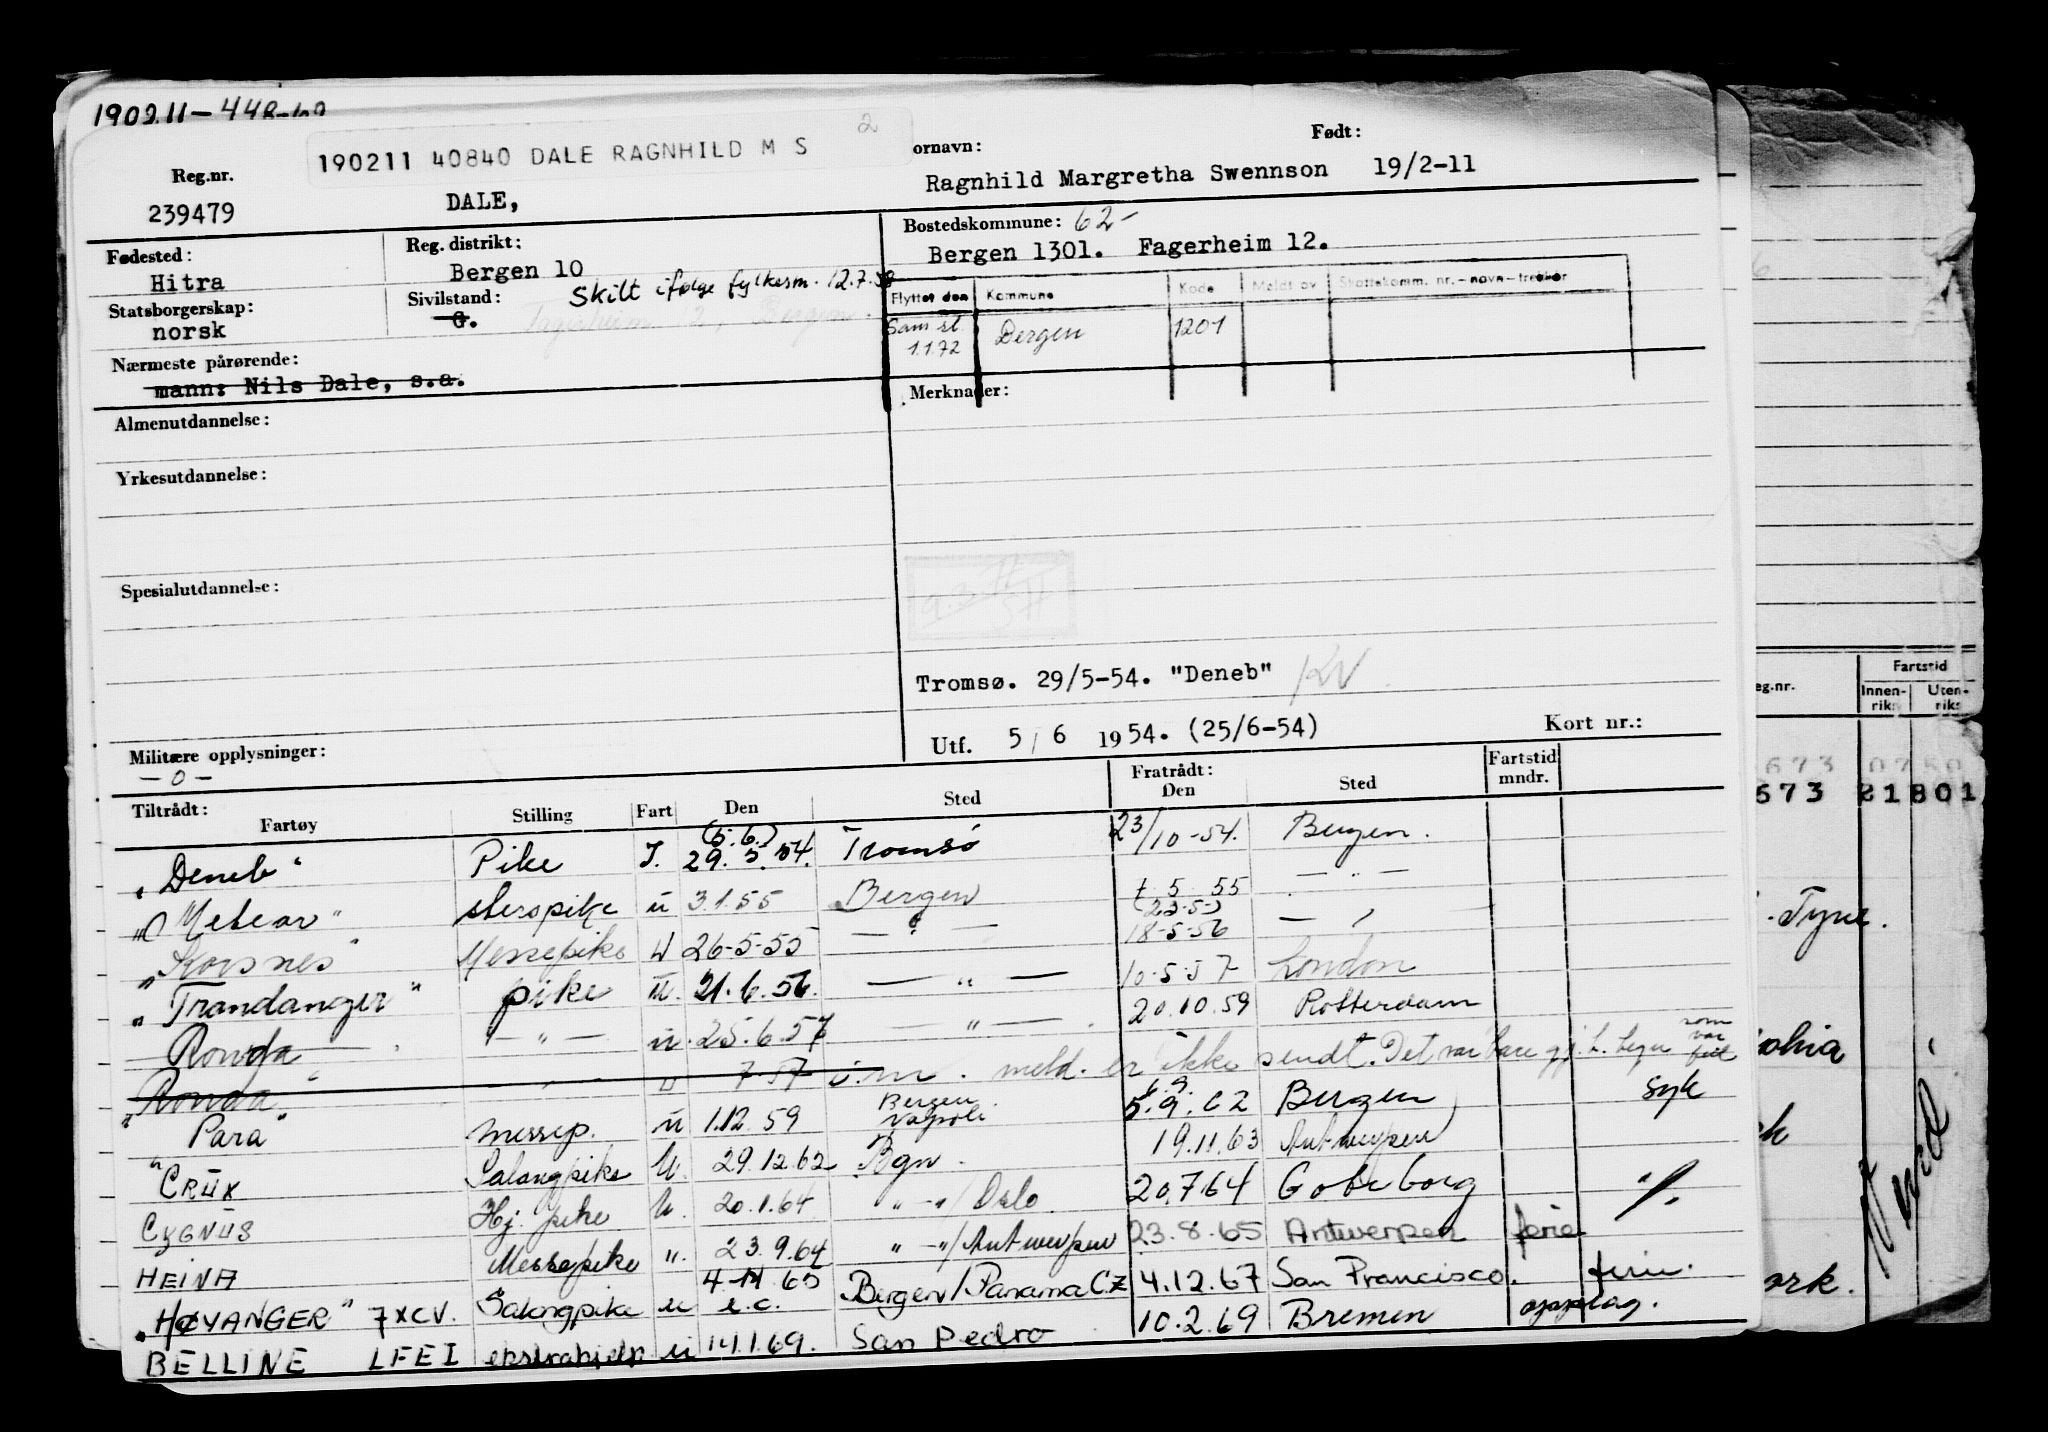 190211-448-62
190211 40840 DALE RAGNHILD M S
2
ornavn:
Født:
Reg.nr.
239479
DALE,
Ragnhild Margretha Swennson 19/2-11
Fødested:
Hitra
Reg. distrikt:
Bergen 10
Bostedskommune: 62-
Bergen 1301. Fagerheim 12.
Statsborgerskap:
norsk
Sivilstand:
G.
Skilt ifølge fylkesm. 12.7.58
Fagerheim 12, Bergen.
Flyttet den Kommune Kode Meldt av Skattekomm. nr.-navn-trekker
Sam st. 1.1.72 Bergen 1201
Nærmeste pårørende:
mann: Nils Dale, s.a.
Merknader:
Almenutdannelse:
Yrkesutdannelse:
Spesialutdannelse:
Tromsø. 29/5-54. "Deneb" KV
Utf. 5/6 1954. (25/6-54)
Kort nr.:
Militære opplysninger:
-0-
Tiltrådt:
Fartøy Stilling Fart Den Sted
Fratrådt:
Den Sted Fartstid mndr.
"Deneb" Pike I. (5.6.) 29.5.54. Tromsø 23/10-54. Bergen.
"Meteor" pike u 3.1.55 Bergen 5 55 — " —
(23.5.)
"Korsnes" Messepike u 26-5-55 — " — 18-5-56 — " —
"Trandanger" pike u. 21.6.56. — " — 10-5-57 London
Ronda — " — u. 25.6.57 — " — 20.10.59 Rotterdam
Ronda " " u 7-57 meld. er ikke sendt. Det var bare som var feil
"Para" messep. u 1.12.59 Bergen Napoli 5.9.62 6.9. Bergen syk
"CRUX Salongpike U. 29.12.62 Bgn. 19.11.63 Antwerpen
CYGNUS Hj. pike U. 20.1.64 " -"/ Oslo 20.7.64 Goteborg
HEINA Messepike ". 23.9.64 " -"/ Antwerpen 23.8.65 Antwerpen ferie
"HØYANGER" 7XCV. Salongpike u 65 Bergen/Panama CZ 4.12.67 San Francisco. ferie.
BELLINE LFEI ekstrahjelp u 14.1.69. San Pedro 10.2.69 Bremen opplag.
eg.nr.
Fartstid
Innen-riks Uten-riks
673 0750
673 21801
Tyne.
ork.